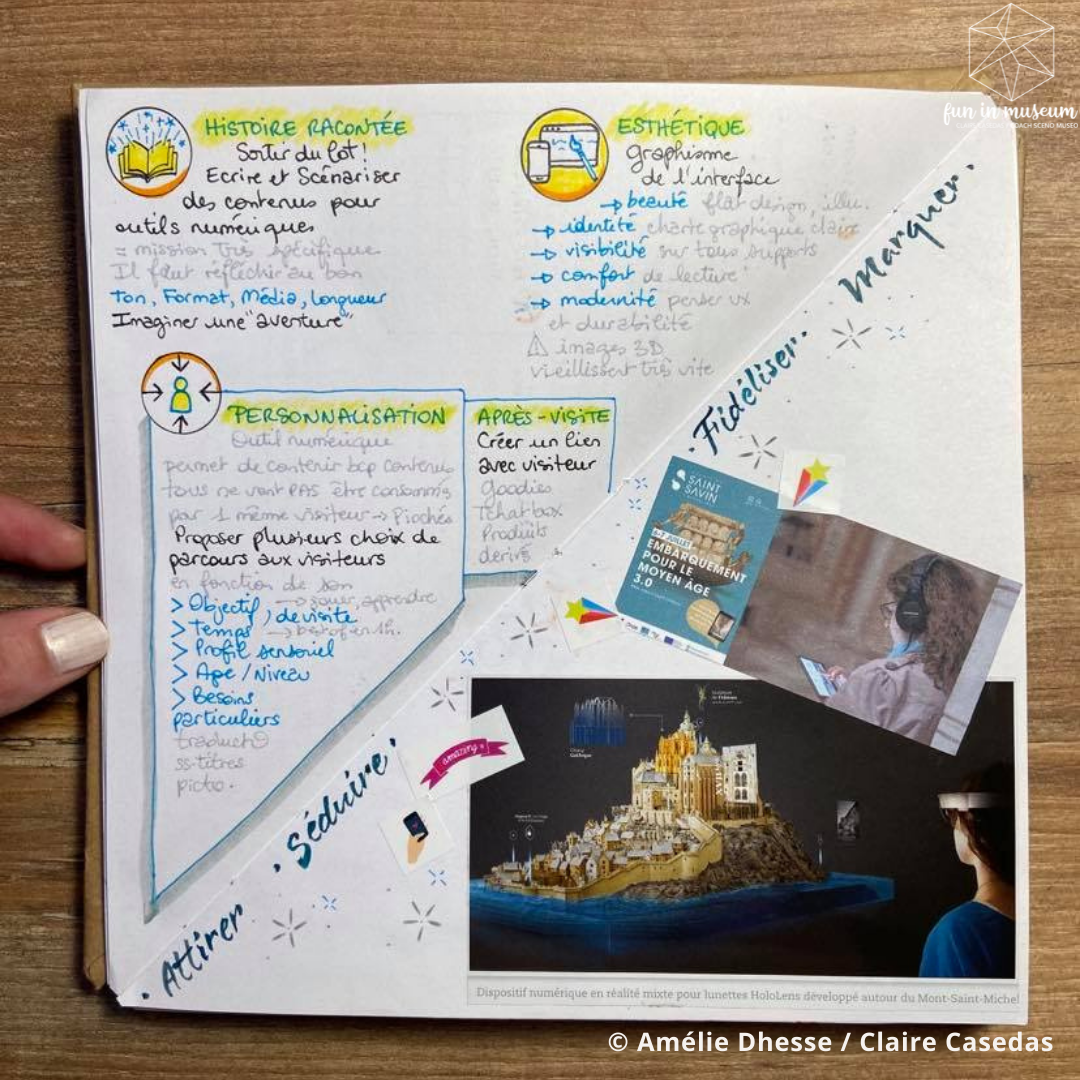 fun in museum
HISTOIRE RACONTÉE
Sortir du lot!
Ecrire et Scénariser
des contenus pour
outils numériques
= mission très spécifique
Il faut réfléchir au bon
Ton, Format, Média, longueur
Imaginer une "aventure"
ESTHÉTIQUE
graphisme
de l'interface
→ beauté flat design, illu.
→ identité charte graphique claire
→ visibilité sur tous supports
→ confort de lecture
→ modernité penser ux
et durabilité
⚠ images 3D
vieillissent très vite
PERSONNALISATION
Outil numérique
permet de contenir bcp contenus
tous ne vont PAS être consommés
par 1 même visiteur → Piochés
Proposer plusieurs choix de
parcours aux visiteurs
en fonction de son
→ jouer, apprendre
> Objectif, de visite
> Temps → best of en 1h.
> Profil sensoriel
> Age / Niveau
> Besoins
particuliers
ss-titres
picto.
APRÈS-VISITE
Créer un lien
avec visiteur
Goodies
Tchatbox
Produits
derivés
· Attirer · Séduire · Fidéliser · Marquer ·
SAINT
SAVIN
6-7 JUILLET
EMBARQUEMENT
POUR LE
MOYEN ÂGE
3.0
amazing
Dispositif numérique en réalité mixte pour lunettes HoloLens développé autour du Mont-Saint-Michel
© Amélie Dhesse / Claire Casedas